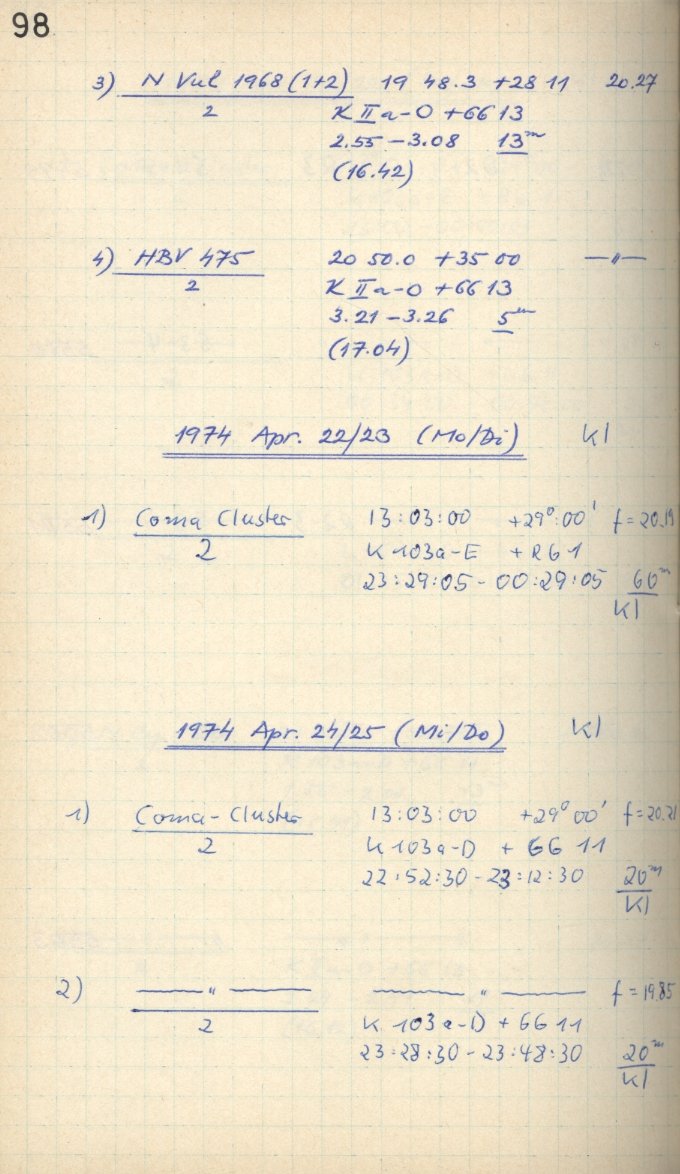 98
3) N Vul 1968 (1+2) 19 48.3 +28 11 20.27
2 K IIa-O + GG 13
2.55 - 3.08 13m
(16.42)
4) HBV 475 20 50.0 +35 00 —"—
2 K IIa-O + GG 13
3.21 - 3.26 5m
(17.04)
1974 Apr. 22/23 (Mo/Di) Kl
1) Coma Cluster 13:03:00 +29°:00' f=20.19
2 K 103a-E + RG 1
23:29:05 - 00:29:05 60m
Kl
1974 Apr. 24/25 (Mi/Do) Kl
1) Coma-Cluster 13:03:00 +29°00' f=20.21
2 K 103a-D + GG 11
22:52:30 - 23:12:30 20m
Kl
2) —"— —"— f=19.85
2 K 103a-D + GG 11
23:28:30 - 23:48:30 20m
Kl